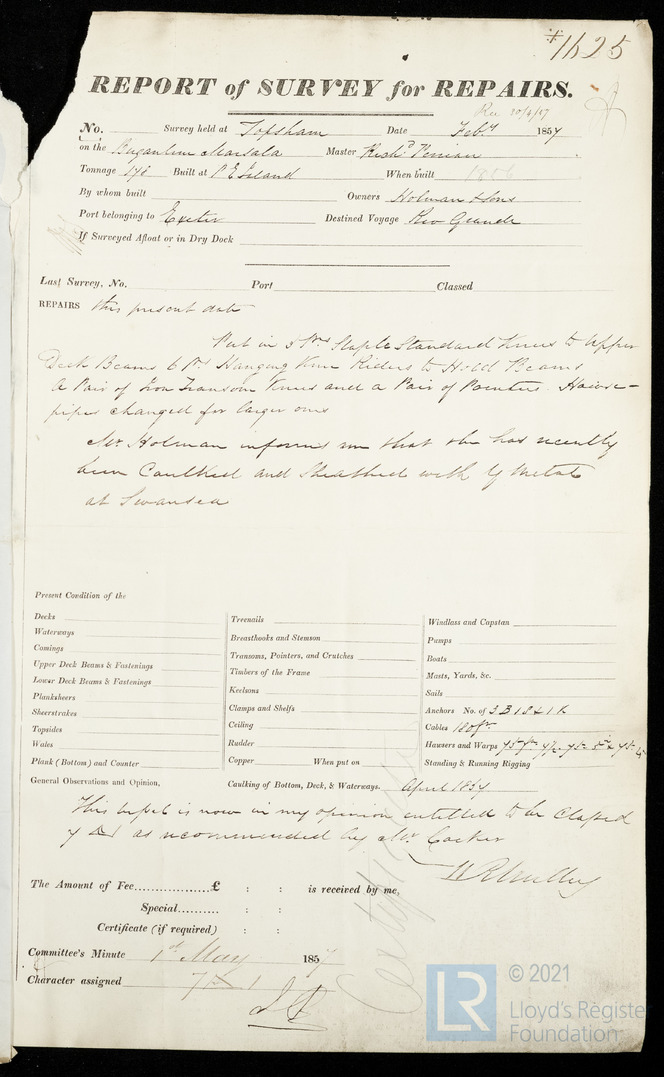 #1625
REPORT of SURVEY for REPAIRS.
Rec 20/4/57
No. Survey held at Topsham Date Feby 1857
on the Brigantine Marsala Master Richd
Tonnage 178 Built at P E Island When built 1856
By whom built Owners Holman & Sons
Port belonging to Exeter Destined Voyage Rio Grande
If Surveyed Afloat or in Dry Dock
Last Survey, No. Port Classed
REPAIRS this present date
Put in 5 Prs Staple Standard Knees to Upper
Deck Beams 6 Prs Hanging Knee Riders to Hold Beams
A Pair of Iron Transom Knees and a Pair of Pointers Hawse-
pipes changed for larger ones
Mr. Holman informs me that she has recently
been Caulked and Sheathed with Y Metal
at Swansea
Present Condition of the
Decks
Waterways
Comings
Upper Deck Beams & Fastenings
Lower Deck Beams & Fastenings
Planksheers
Sheerstrakes
Topsides
Wales
Plank (Bottom) and Counter
Treenails
Breasthooks and Stemson
Transoms, Pointers, and Crutches
Timbers of the Frame
Keelsons
Clamps and Shelfs
Ceiling
Rudder
Copper When put on
Windlass and Capstan
Pumps
Boats
Masts, Yards, &c.
Sails
Anchors No. of 3 B 1 S & 1 K
Cables 180 fm
Hawsers and Warps 75 fm
Standing & Running Rigging
General Observations and Opinion, Caulking of Bottom, Deck, & Waterways. April 1857
This vessel is now in my opinion entitled to be Classed
7 A1 as recommended by Mr.
The Amount of Fee................£ : : is received by me,
Special.......... : :
Certificate (if required) : :
Committee's Minute 1st May 1857
Character assigned 7 A 1
Certificate
LR © 2021
Lloyd's Register
Foundation